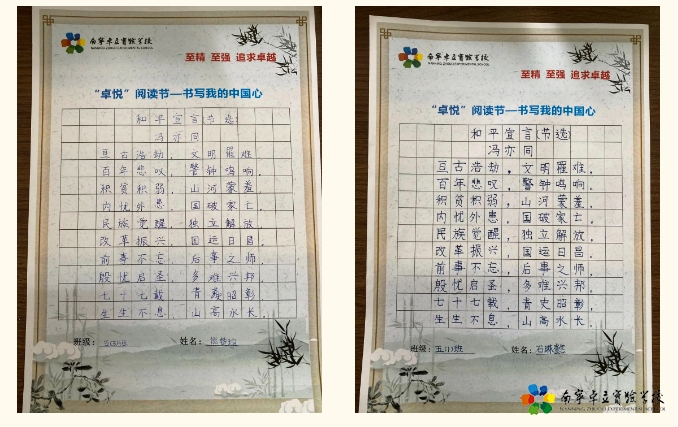 南宁卓立实验学校
NANNING ZHUOLI EXPERIMENTAL SCHOOL
至精 至强 追求卓越
“卓悦”阅读节—书写我的中国心
和平宣言(节选)
冯亦同
亘古浩劫，文明罹难。
百年悲叹，警钟鸣响。
积贫积弱，山河蒙羞。
内忧外患，国破家亡。
民族觉醒，独立解放，
改革振兴，国运日昌。
前事不忘，后事之师。
殷忧启圣，多难兴邦。
七十七载，青史昭彰
生生不息，山高水长。
班级：
姓名：
南宁卓立实验学校
NANNING ZHUOLI EXPERIMENTAL SCHOOL
至精 至强 追求卓越
“卓悦”阅读节—书写我的中国心
和平宣言(节选)
冯亦同
亘古浩劫，文明罹难。
百年悲叹，警钟鸣响。
积贫积弱，山河蒙羞。
内忧外患，国破家亡。
民族觉醒，独立解放，
改革振兴，国运日昌。
前事不忘，后事之师。
殷忧启圣，多难兴邦。
七十七载，青史昭彰，
生生不息，山高水长。
班级：五(1)班 姓名：石
南宁卓立实验学校
NANNING ZHUOLI EXPERIMENTAL SCHOOL